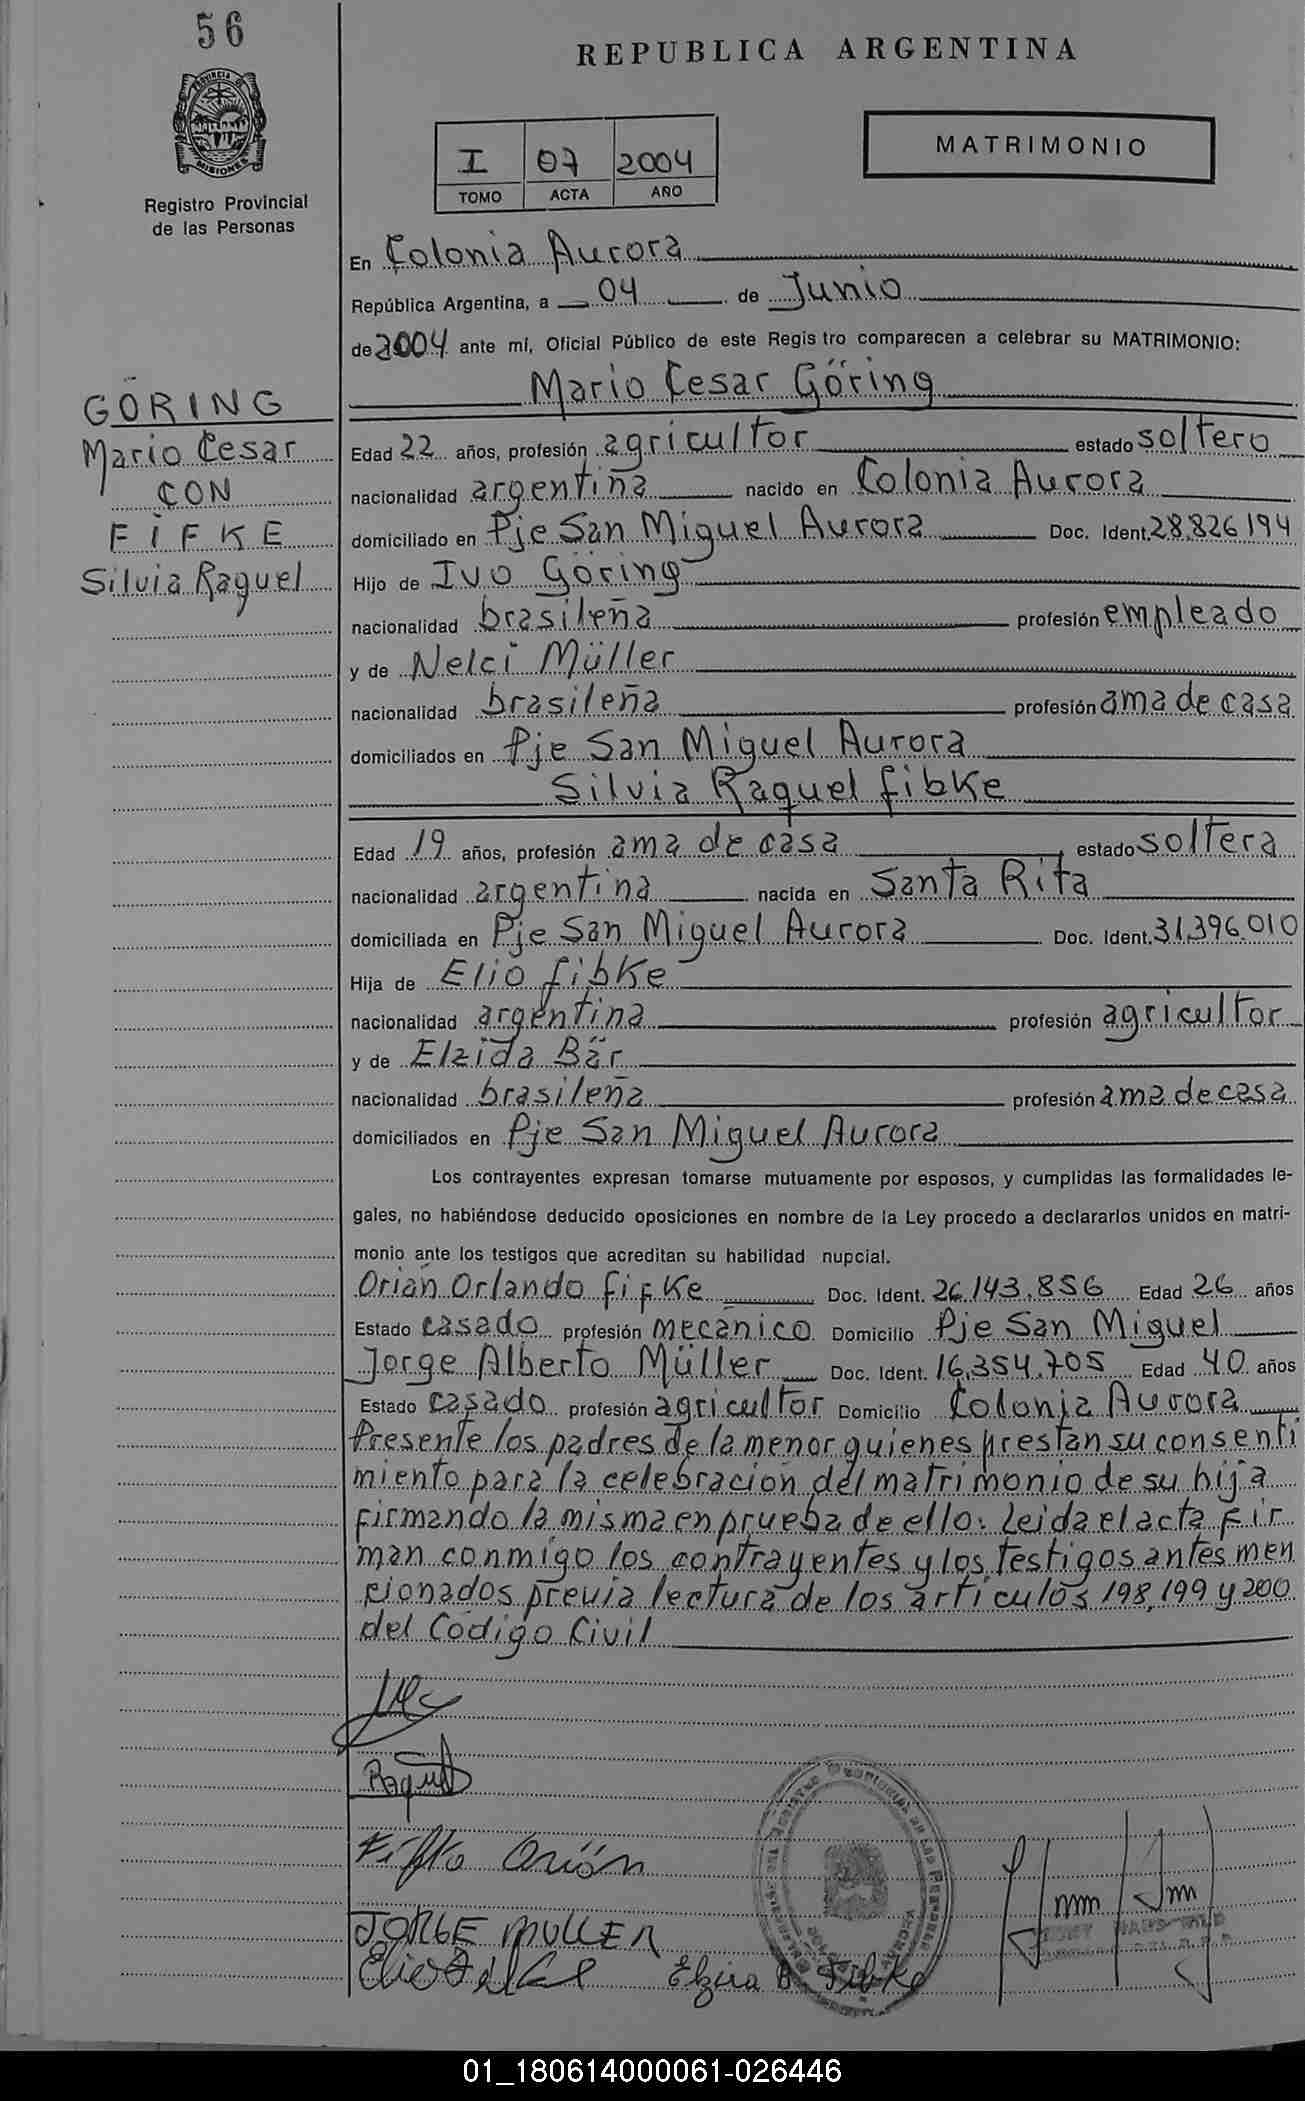 56
REPUBLICA ARGENTINA
PROVINCIA DE
MISIONES
Registro Provincial
de las Personas
I 07 2004
TOMO ACTA AÑO
MATRIMONIO
En Colonia Aurora
República Argentina, a 04 de Junio
de 2004 ante mí, Oficial Público de este Regis tro comparecen a celebrar su MATRIMONIO:
GÖRING
Mario Cesar
CON
FIFKE
Silvia Raquel
Mario Cesar Göring
Edad 22 años, profesión agricultor estado soltero
nacionalidad argentina nacido en Colonia Aurora
domiciliado en Pje San Miguel Aurora Doc. Ident. 28.826194
Hijo de Ivo Göring
nacionalidad brasileña profesión empleado
y de Nelci Müller
nacionalidad brasileña profesión ama de casa
domiciliados en Pje San Miguel Aurora
Silvia Raquel fibke
Edad 19 años, profesión ama de casa estado soltera
nacionalidad argentina nacida en Santa Rita
domiciliada en Pje San Miguel Aurora Doc. Ident. 31.396.010
Hija de Elio fibke
nacionalidad argentina profesión agricultor
y de Elzida Bär
nacionalidad brasileña profesión ama de casa
domiciliados en Pje San Miguel Aurora
Los contrayentes expresan tomarse mutuamente por esposos, y cumplidas las formalidades le-
gales, no habiéndose deducido oposiciones en nombre de la Ley procedo a declararlos unidos en matri-
monio ante los testigos que acreditan su habilidad nupcial.
Orian Orlando fifke Doc. Ident. 26.143.856 Edad 26 años
Estado casado profesión mecanico Domicilio Pje San Miguel
Jorge Alberto Müller Doc. Ident. 16.354.705 Edad 40 años
Estado casado profesión agricultor Domicilio Colonia Aurora
Presente los padres de la menor quienes prestan su consenti
miento para la celebracion del matrimonio de su hija
firmando la misma en prueba de ello: Leida el acta fir
man conmigo los contrayentes y los testigos antes men
cionados previa lectura de los articulos 198, 199 y 200
del Codigo Civil
Raquel
Fifke Orión
JORGE MULLER
Elio Fifke Elzira B. Fibke
01_180614000061-026446